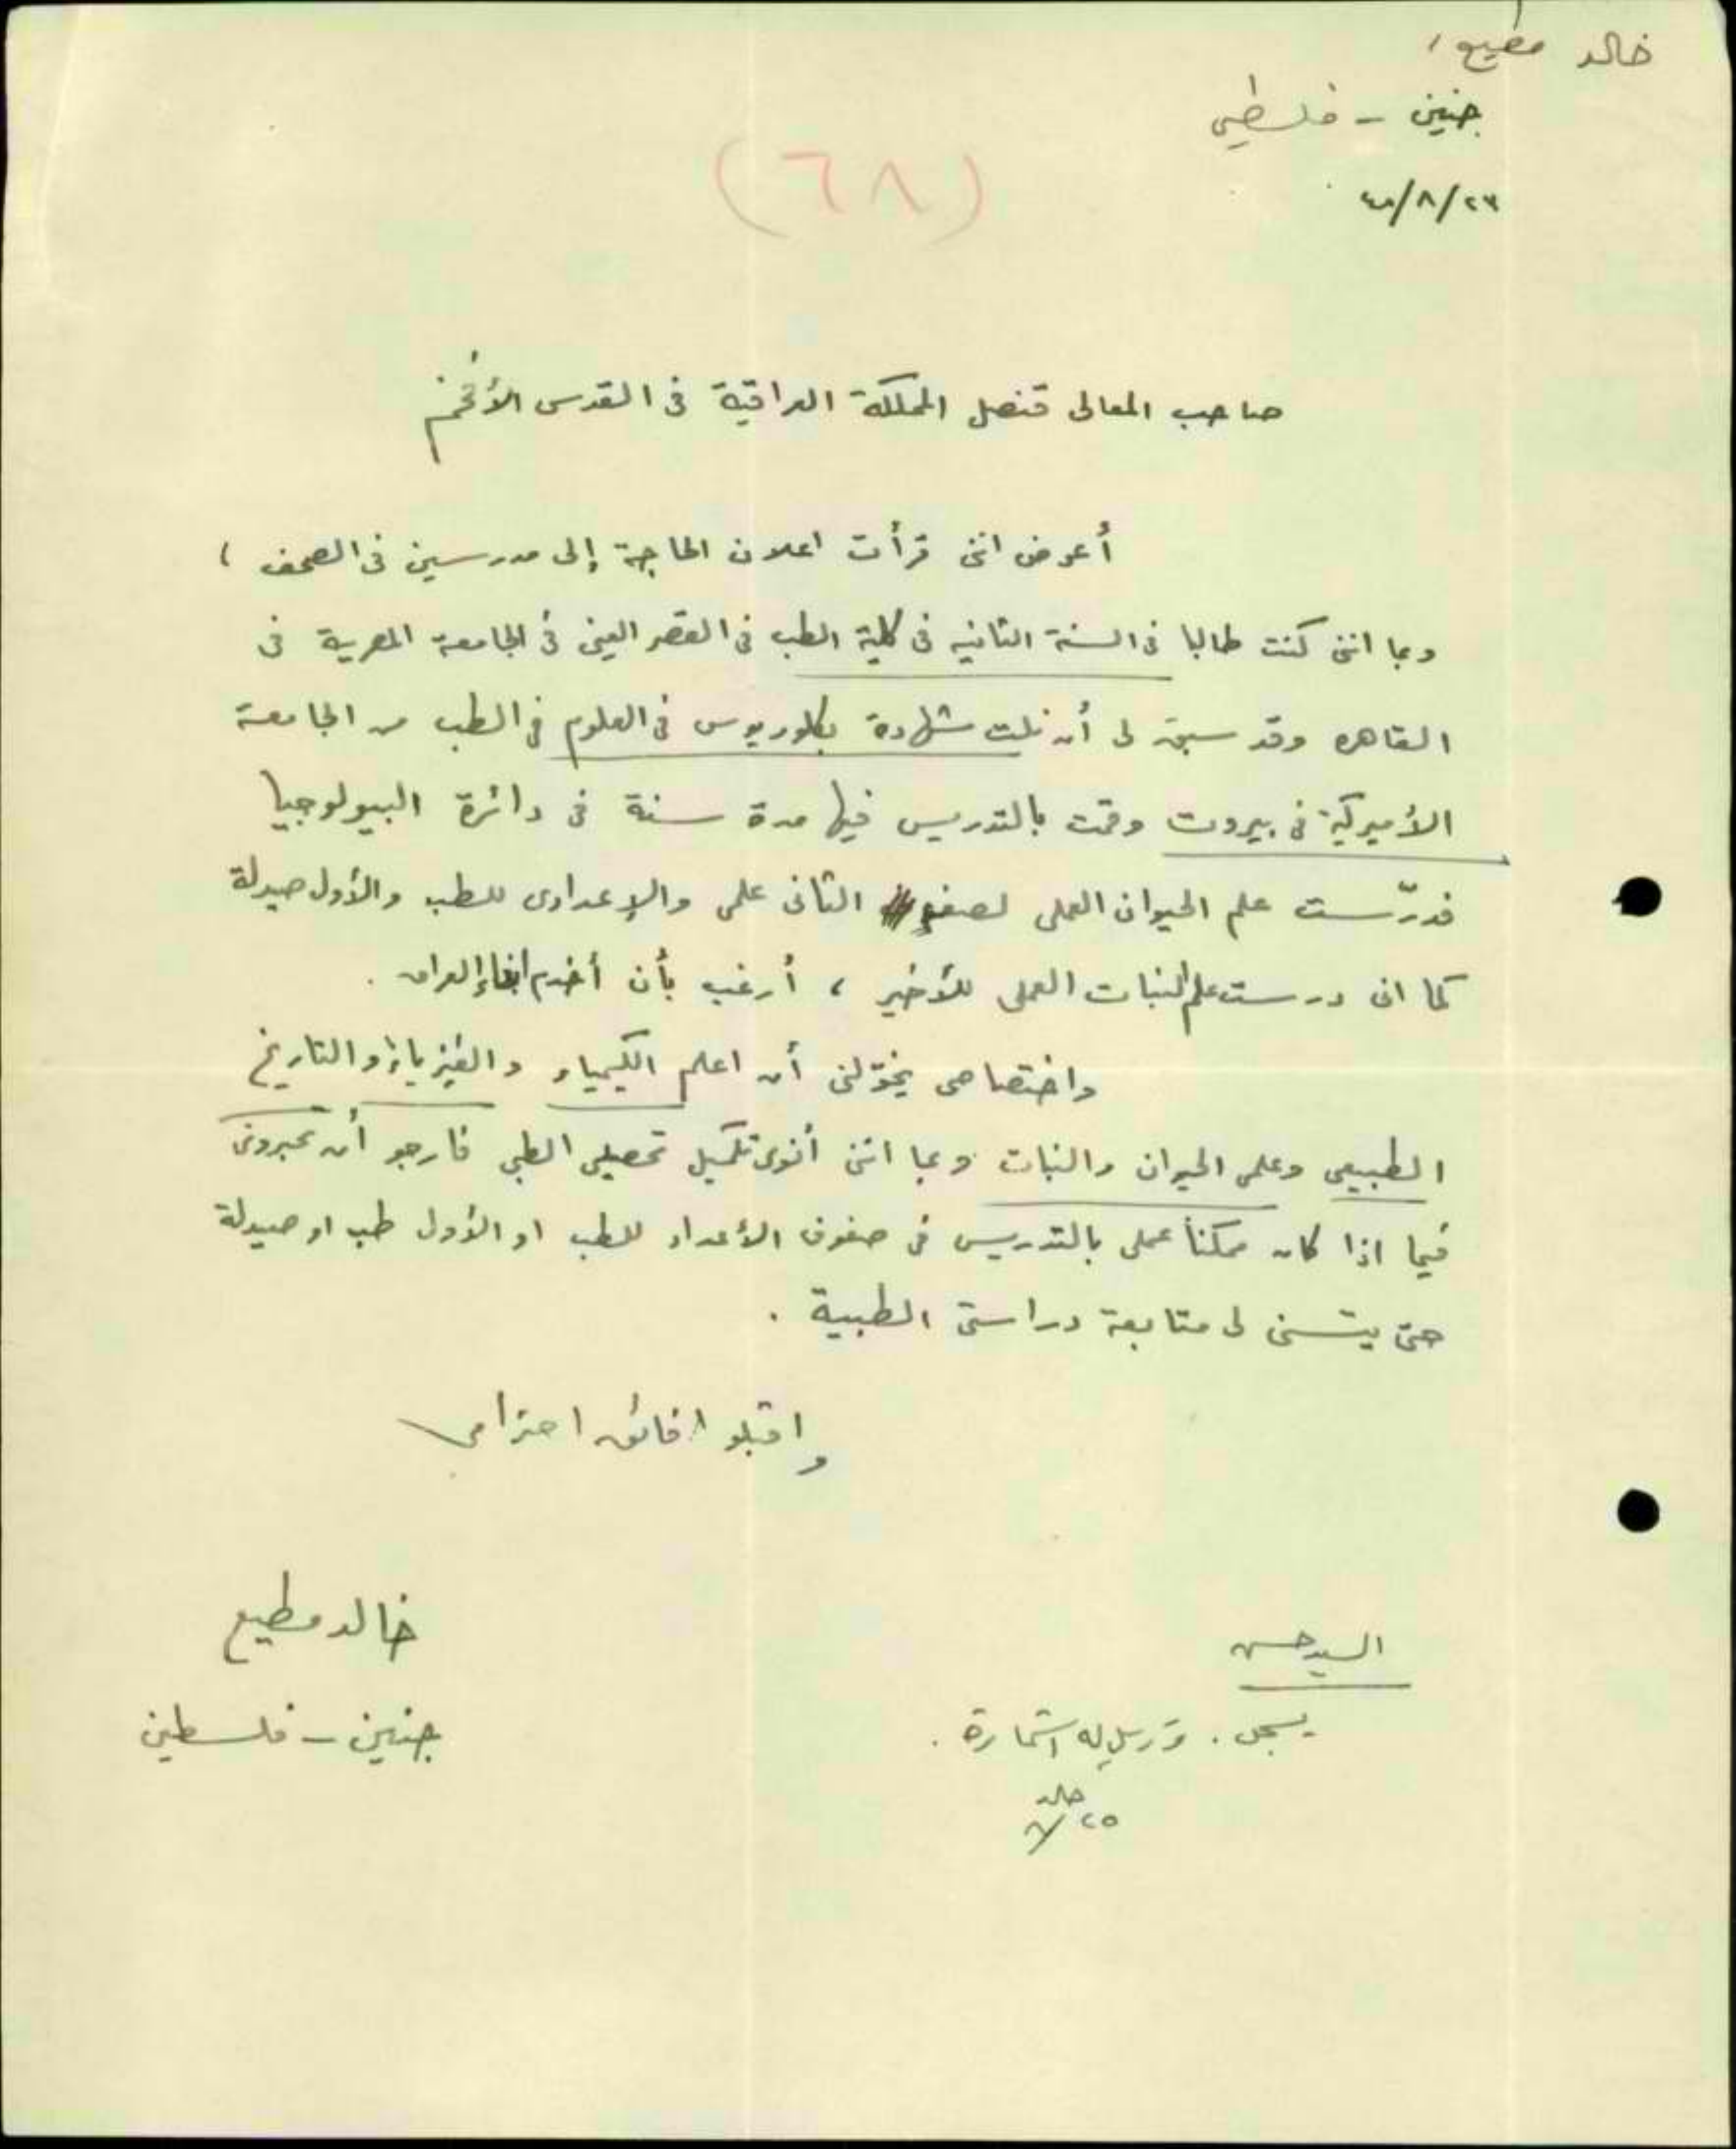 خالد مطيع،
جنين - فلسطين
(٦٨)
صاحب المعالى قنصل المملكة العراقية فى القدس الأفخم
أعرض اننى قرأت اعلان الحاجة إلى مدرسين فى الصحف ،
وبما اننى كنت طالبا فى السنة الثانيه فى كلية الطب فى القصر العينى فى الجامعة المصرية فى
القاهره وقد سبق لى أن نلت شهادة بكلوريوس فى العلوم فى الطب من الجامعة
الأميركية فى بيروت وقمت بالتدريس فيها مدة سنة فى دائرة البيولوجيا
فدرّست علم الحيوان العملى لصفى الثانى علمى والإعدادى للطب والأول صيدلة
كما انى درست علم النبات العملى للأخير ، أرغب بأن أخدم أبناء العراق .
واختصاصى يخوّلنى أن اعلم الكيمياء والفيزياء والتاريخ
الطبيعى وعلمى الحيوان والنبات وبما اننى أنوى تكميل تحصيلى الطبى فارجو أن تخبرونى
فيما اذا كان ممكناً عملى بالتدريس فى صفوف الأعداد للطب او الأول طب او صيدلة
حتى يتسنى لى متابعة دراستى الطبية .
واقبلوا فائق احترامى
خالد مطيع
جنين - فلسطين
السيد حسن
يسجل . وترسل له استمارة .
خالد
٢٥/٨